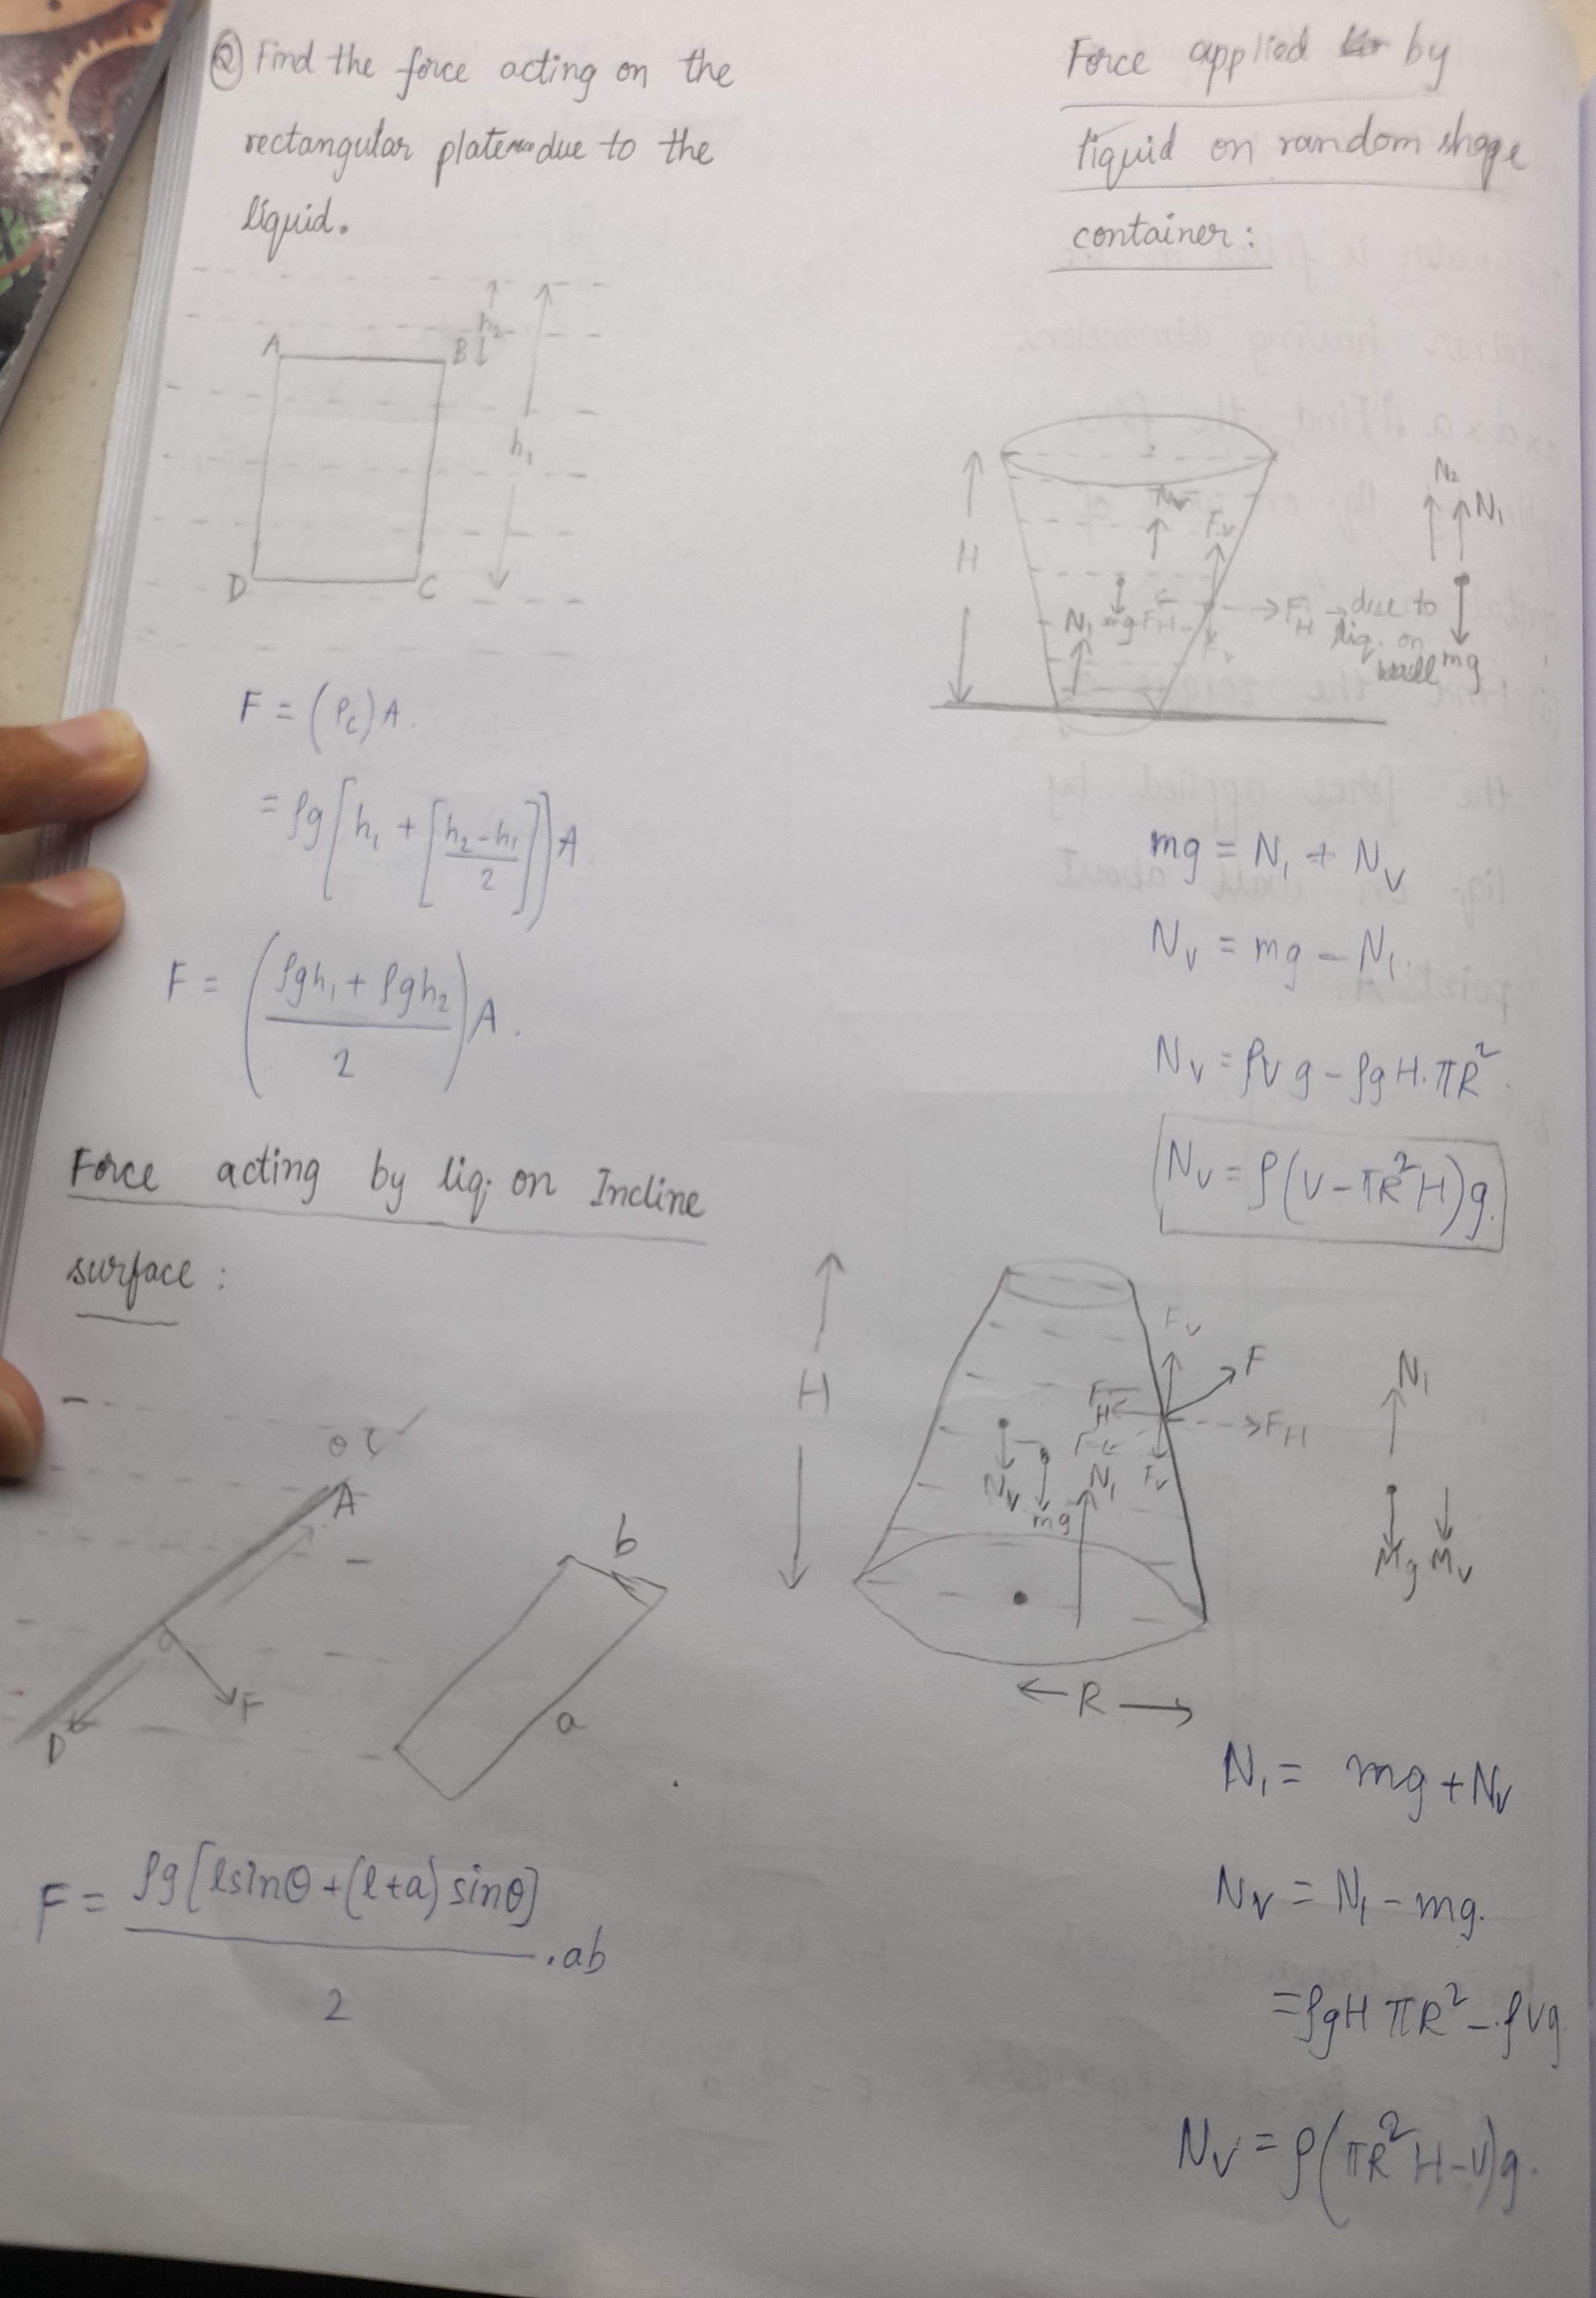 Q Find the force acting on the
rectangular plate due to the
liquid.
A
B
h₂
h₁
D
C
F = (P_c) A.
= ρg[h₁ + [(h₂ - h₁)/2]] A.
F = ((ρgh₁ + ρgh₂)/2) A.
Force acting by liq. on Incline
surface :
A
F
D
b
a
F = ρg[lsinθ + (l+a) sinθ]/2 .ab
Force applied by
liquid on random shape
container :
H
N_v
F_v
N₁
mg
F_H
F_v
F_H → due to
liq. on
wall
N₂
N₁
mg
mg = N₁ + N_v
N_v = mg - N₁.
N_v = ρVg - ρgH.πR².
N_v = ρ(V - πR²H)g.
H
F_v
F
F_H
F_H
N_v
mg
N₁
F_v
R
N₁
Mg
M_v
N₁ = mg + N_v
N_v = N₁ - mg.
= ρgH πR² - ρVg
N_v = ρ(πR²H - V)g.